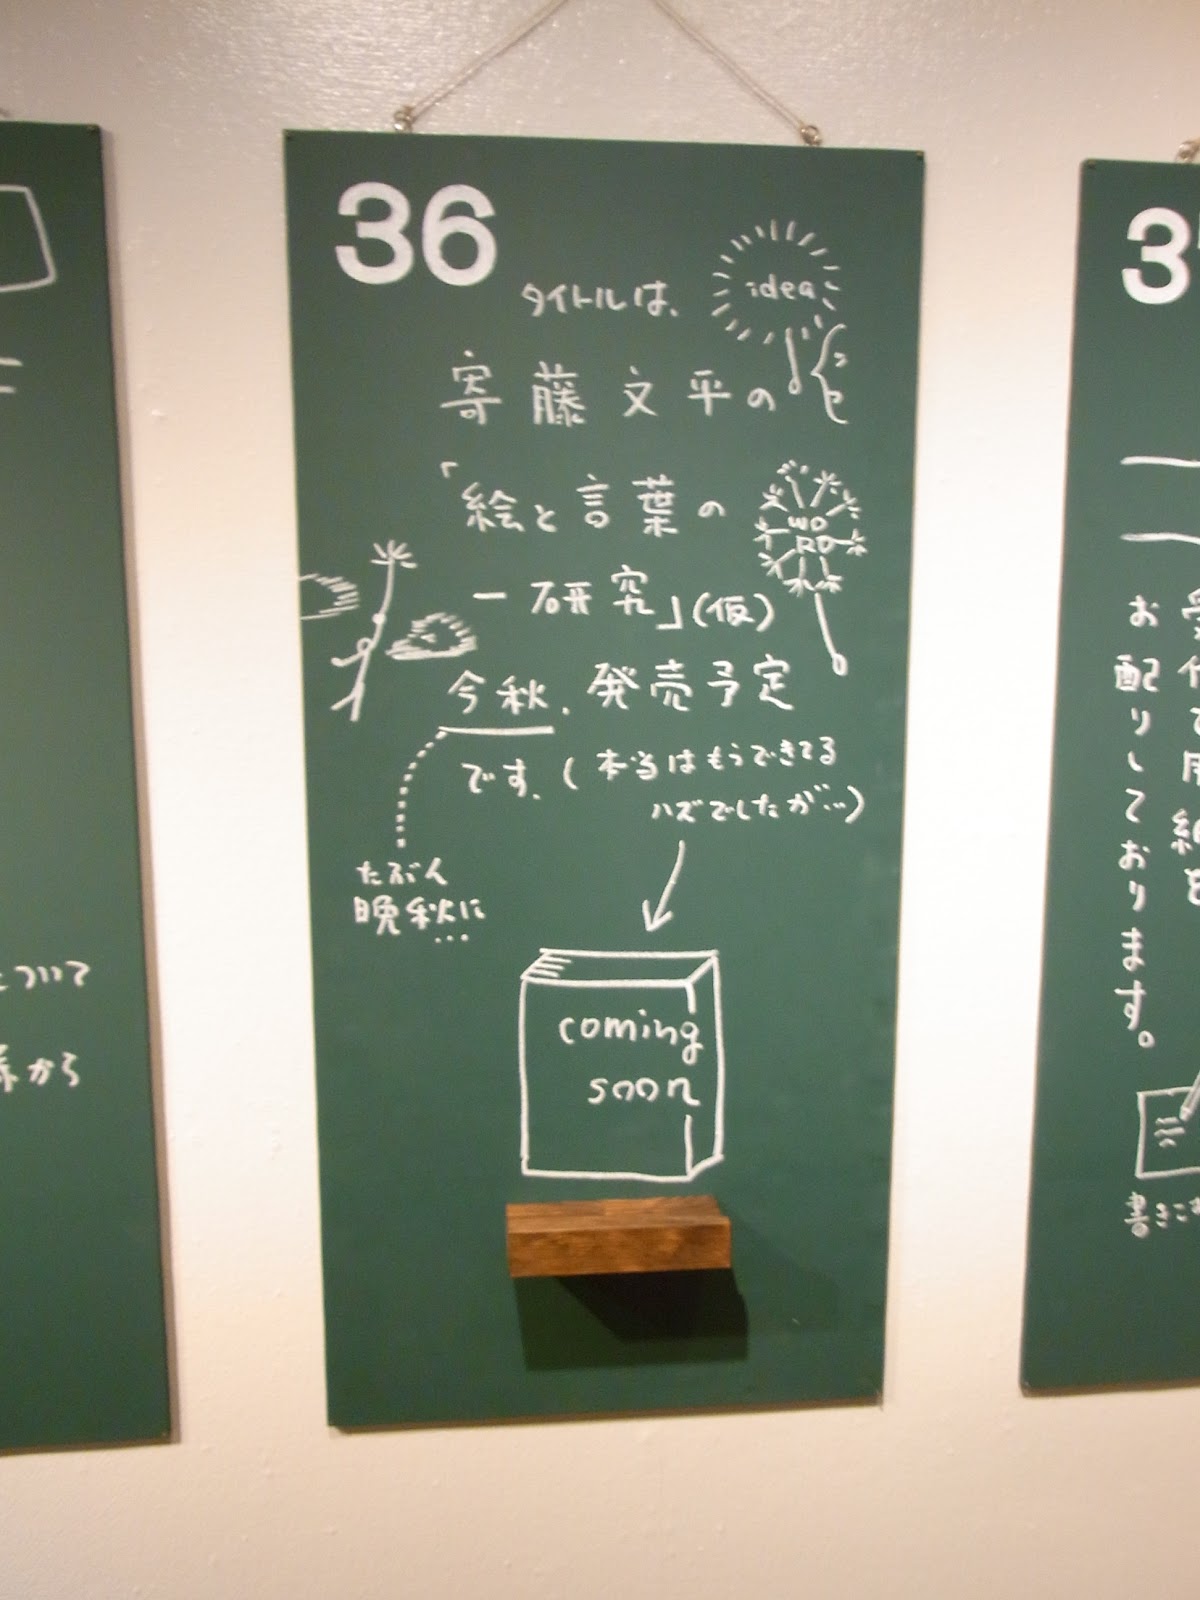 36
タイトルは、
idea
寄藤文平の
「絵と言葉の
WO
RD
一研究」(仮)
今秋、発売予定
です。(本当はもうできてる
ハズでしたが…)
たぶん
晩秋に
…
coming
soon
ついて
から
3
お配りしております。
書きこ